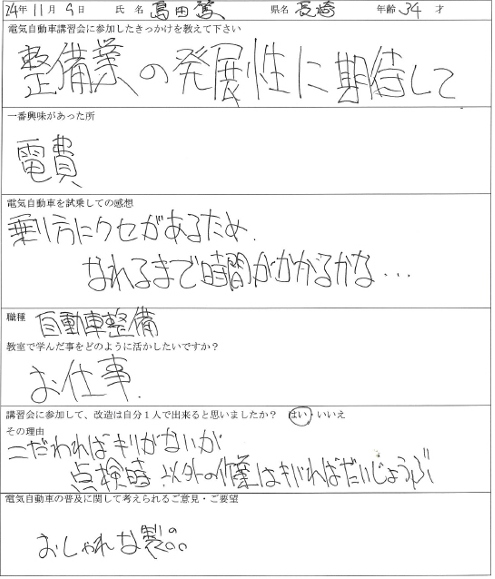 24年 11月 9日 氏 名 島田 篤 県名 長崎 年齢 34 才
電気自動車講習会に参加したきっかけを教えて下さい
整備業の発展性に期待して
一番興味があった所
電費
電気自動車を試乗しての感想
乗り方にクセがあるため.
なれるまで時間がかかるかな...
職種 自動車整備
教室で学んだ事をどのように活かしたいですか?
お仕事.
講習会に参加して、改造は自分1人で出来ると思いましたか? はい・いいえ
その理由
こだわればキリがないが
点検時 以外の作業は だいじょうぶ
電気自動車の普及に関して考えられるご意見・ご要望
おしゃれな製